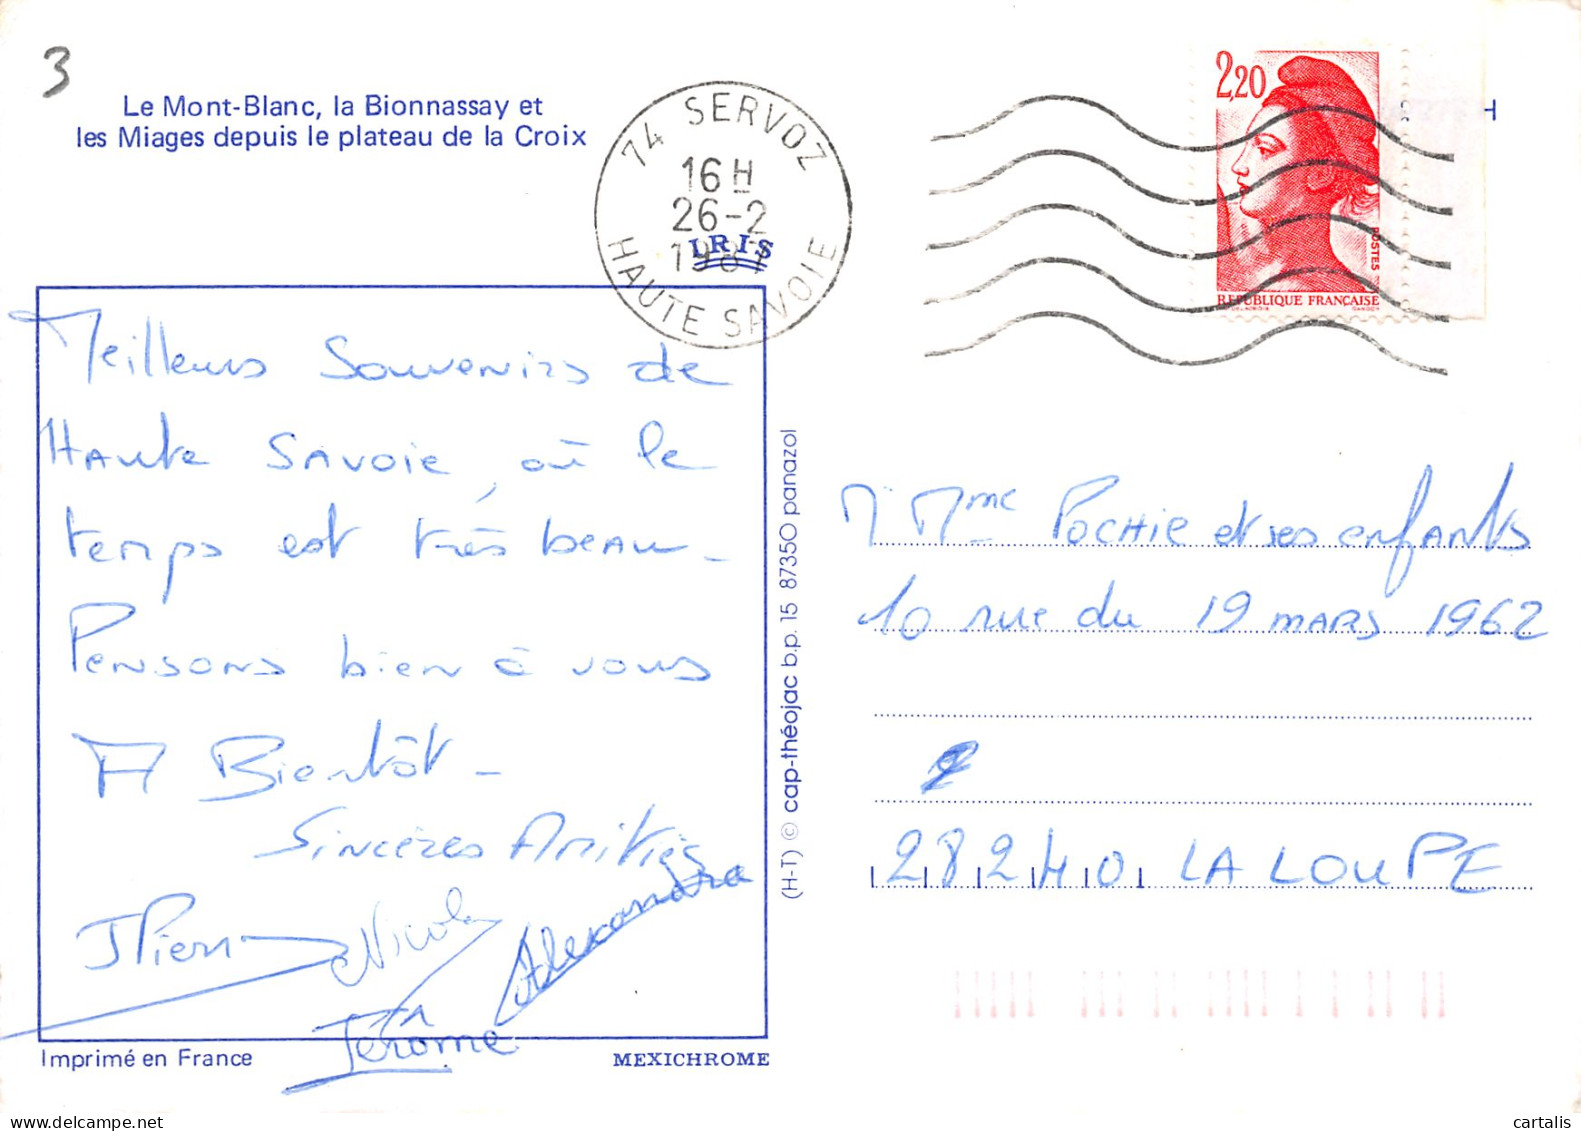 3
Le Mont-Blanc, la Bionnassay et
les Miages depuis le plateau de la Croix
74 SERVOZ
16 H
26-2
1987
HAUTE SAVOIE
IRIS
2,20
POSTES
RÉPUBLIQUE FRANÇAISE
Meilleurs Souvenirs de
HAute SAvoie, où le
temps est très beau -
Pensons bien à vous
A Bientôt -
Sincères Amitiés
JPierre
Nicolas
Alexandra
Jérome
Imprimé en France
MEXICHROME
(H-T) © cap-théojac b.p. 15 87350 panazol
M Mme POCHIE et ses enfants
10 rue du 19 MARS 1962
28240 LA LOUPE
cartalis